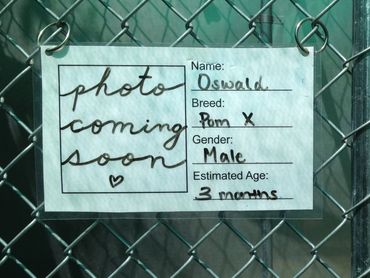 photo
coming
soon
♡
Name:
Oswald
Breed:
Pom X
Gender:
Male
Estimated Age:
3 months